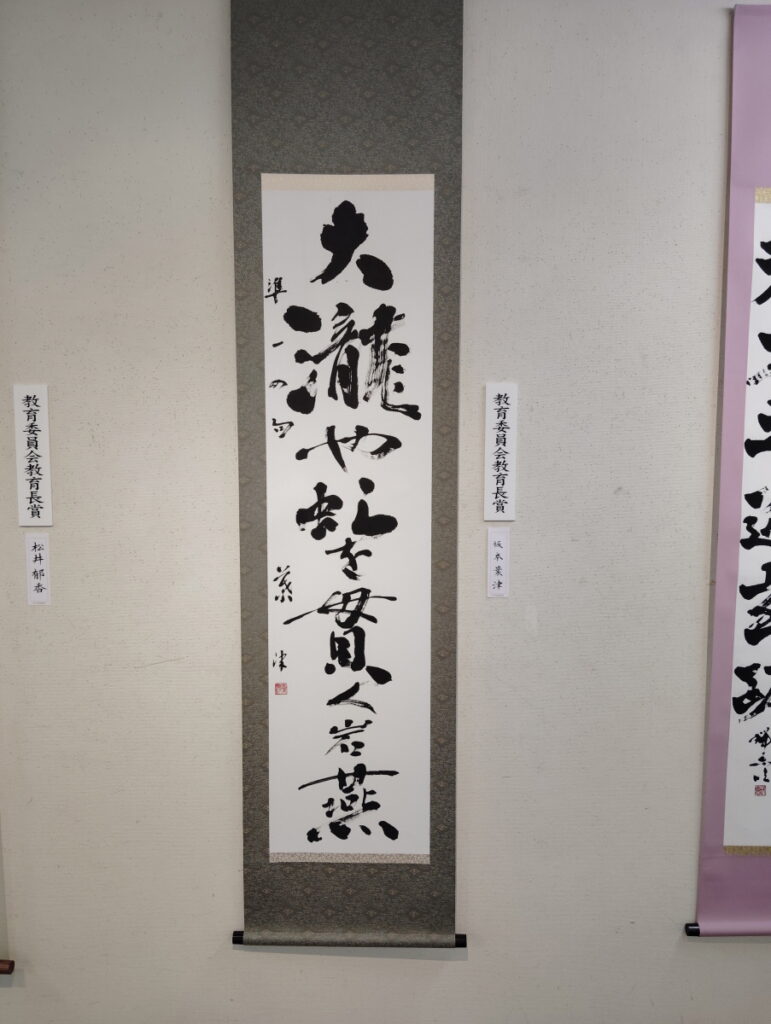 大瀧や虹を貫く岩燕
準一の句
葉津
教育委員会教育長賞
坂本葉津
教育委員会教育長賞
松井郁香